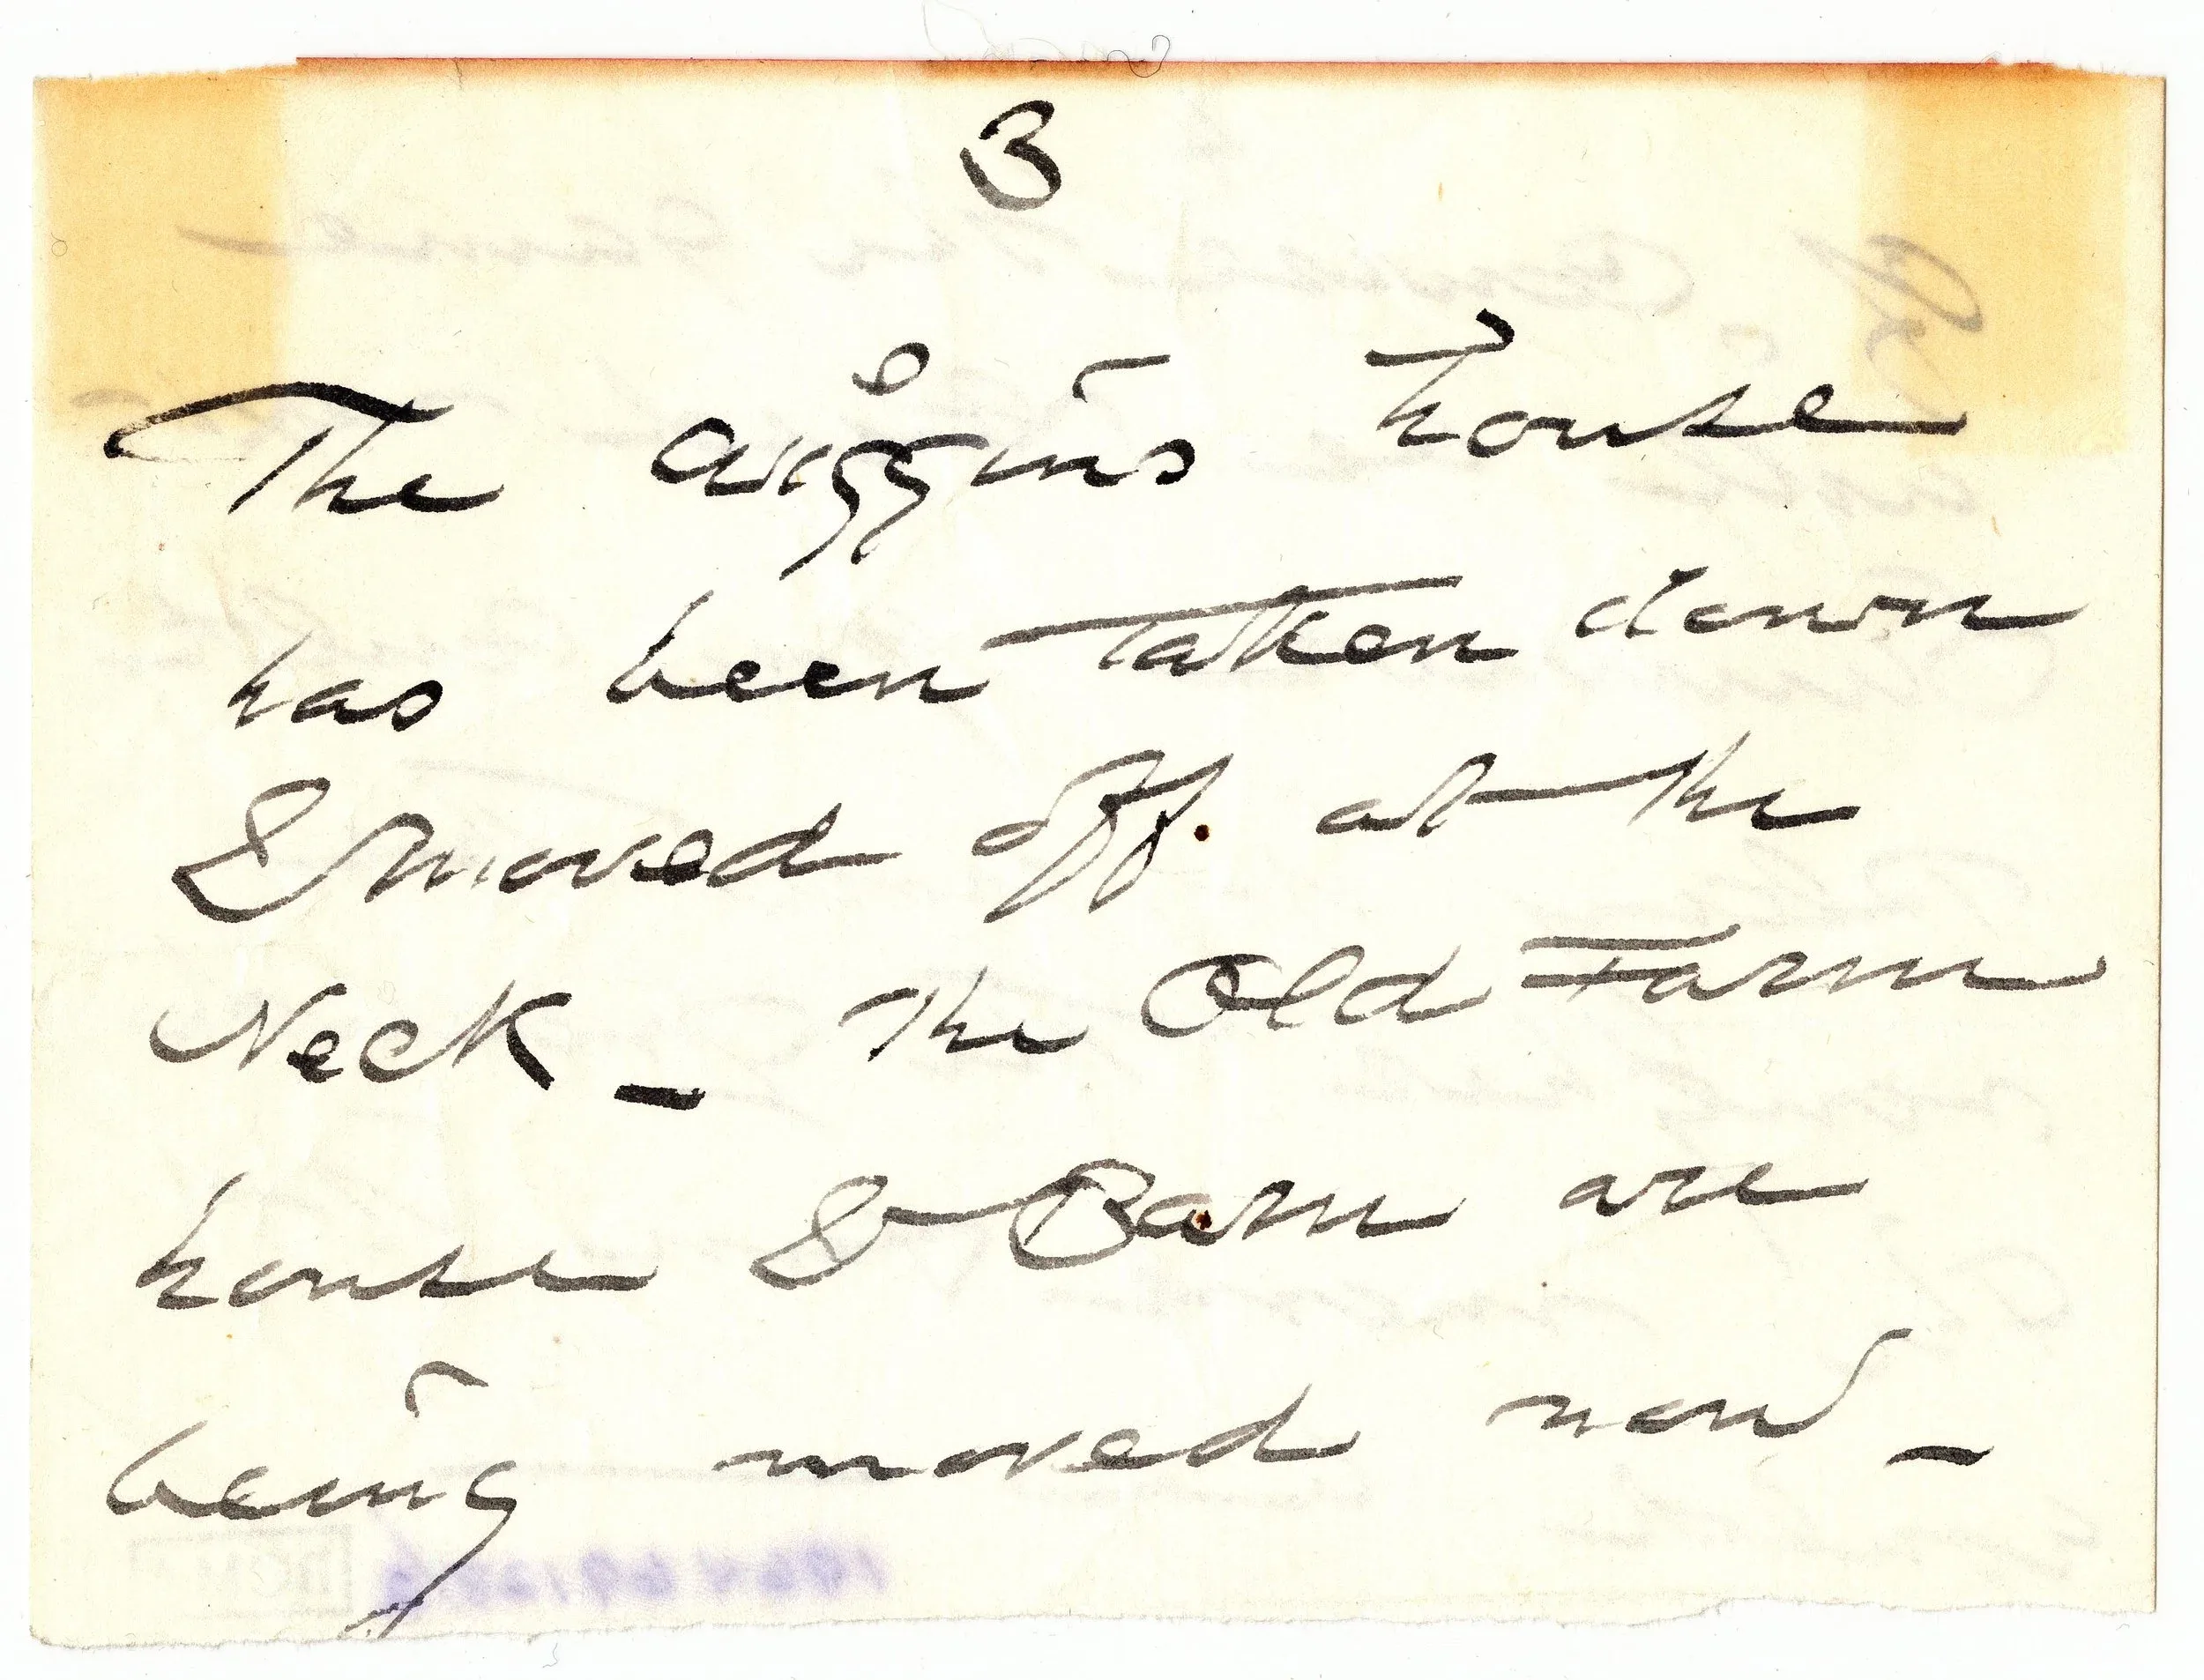 3
The Wiggins house
has been taken down
& moved off. at the
Neck _ The Old Farm
house & Barn are
being moved now _